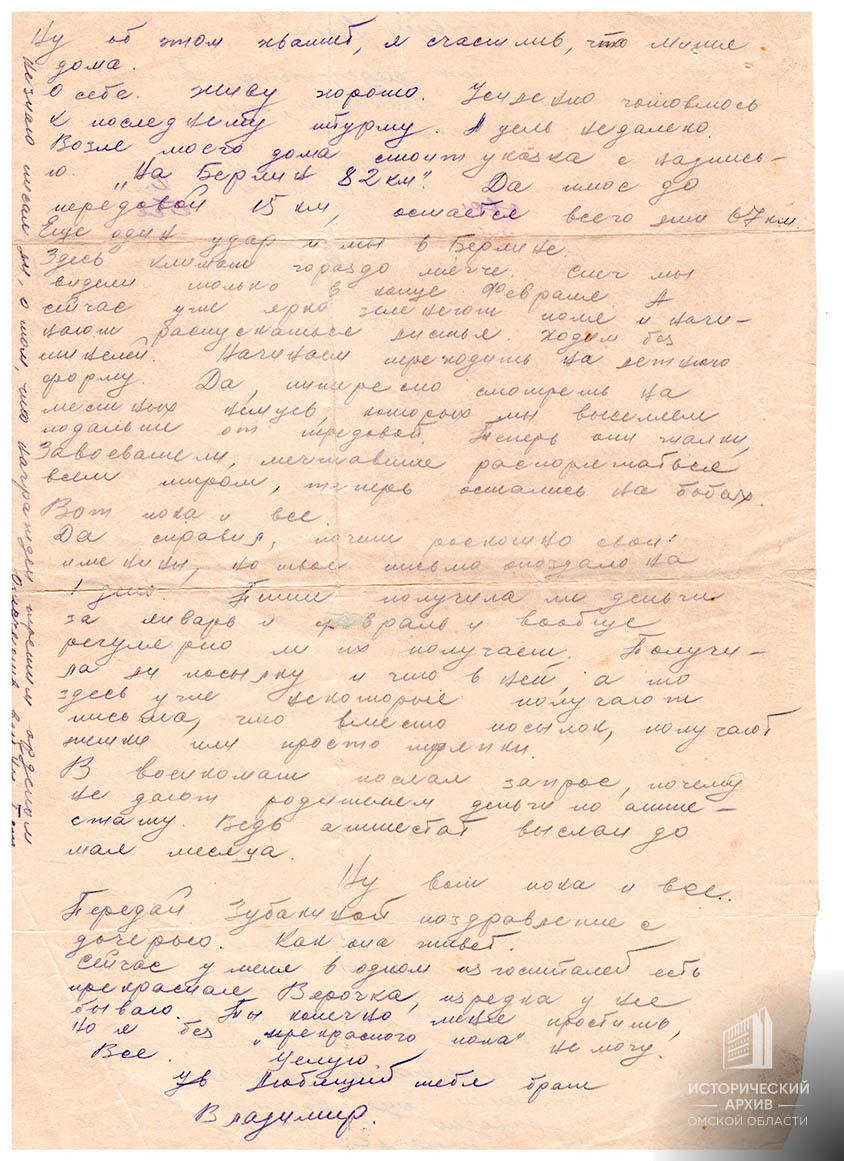 Ну об этом хватит, я счастлив, что Миша
дома.
О себе. Живу хорошо. Усиленно готовлюсь
к последнему штурму. А цель недалеко.
Возле моего дома стоит указка с надпись-
ю „На Берлин 82 км". Да плюс до
передовой 15 км, остаётся всего лиш 67 км.
Еще один удар и мы в Берлине.
Здесь климат гораздо мягче. Снег мы
видели только в конце Февраля. А
сейчас уже ярко зеленеют поля и начи-
нают распускаться листья. Ходим без
шинелей. Начинаем переходить на летнюю
форму. Да, интересно смотреть на
местных немцев, которых мы выселяем
подальше от передовой. Теперь они жалки,
Завоеватели, мечтавшие распоряжаться
всем миром, теперь остались на бобах.
Вот пока и все.
Да справил, почти роскошно свои
именины, но твое письмо опоздало на
1 день. Пиши получила ли деньги
за январь и февраль и вообще
регулярно ли их получаеш. Получи-
ла ли посылку и что в ней, а то
здесь уже некоторые получают
письма, что вместо посылок, получают
мешки или просто тряпки.
В военкомат послал запрос, почему
не дают родителем деньги по атте-
стату. Ведь аттестат выслан до
мая месяца.
Ну вот пока и все.
Передай Зубакиной поздравление с
дочерью. Как она живет.
Сейчас у меня в одном из госпиталей есть
прекрасная Верочка, изредка у нее
бываю. Ты конечно меня простишь,
но я без „прекрасного пола" не могу.
Все. Целую.
Ув Любящий тебя брат
Владимир.
Незнаю писал ли, о том, что награжден третьим орденом
Отечественная война
ИСТОРИЧЕСКИЙ
АРХИВ
ОМСКОЙ ОБЛАСТИ